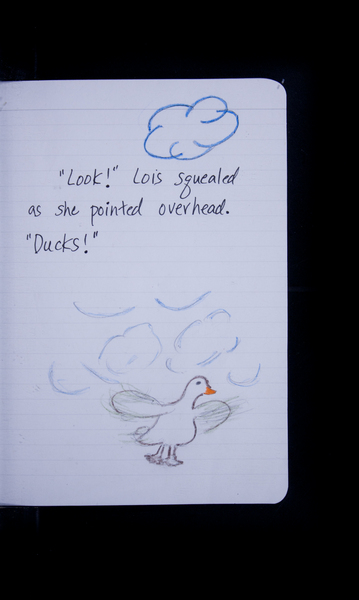 "Look!" Lois squealed
as she pointed overhead.
"Ducks!"